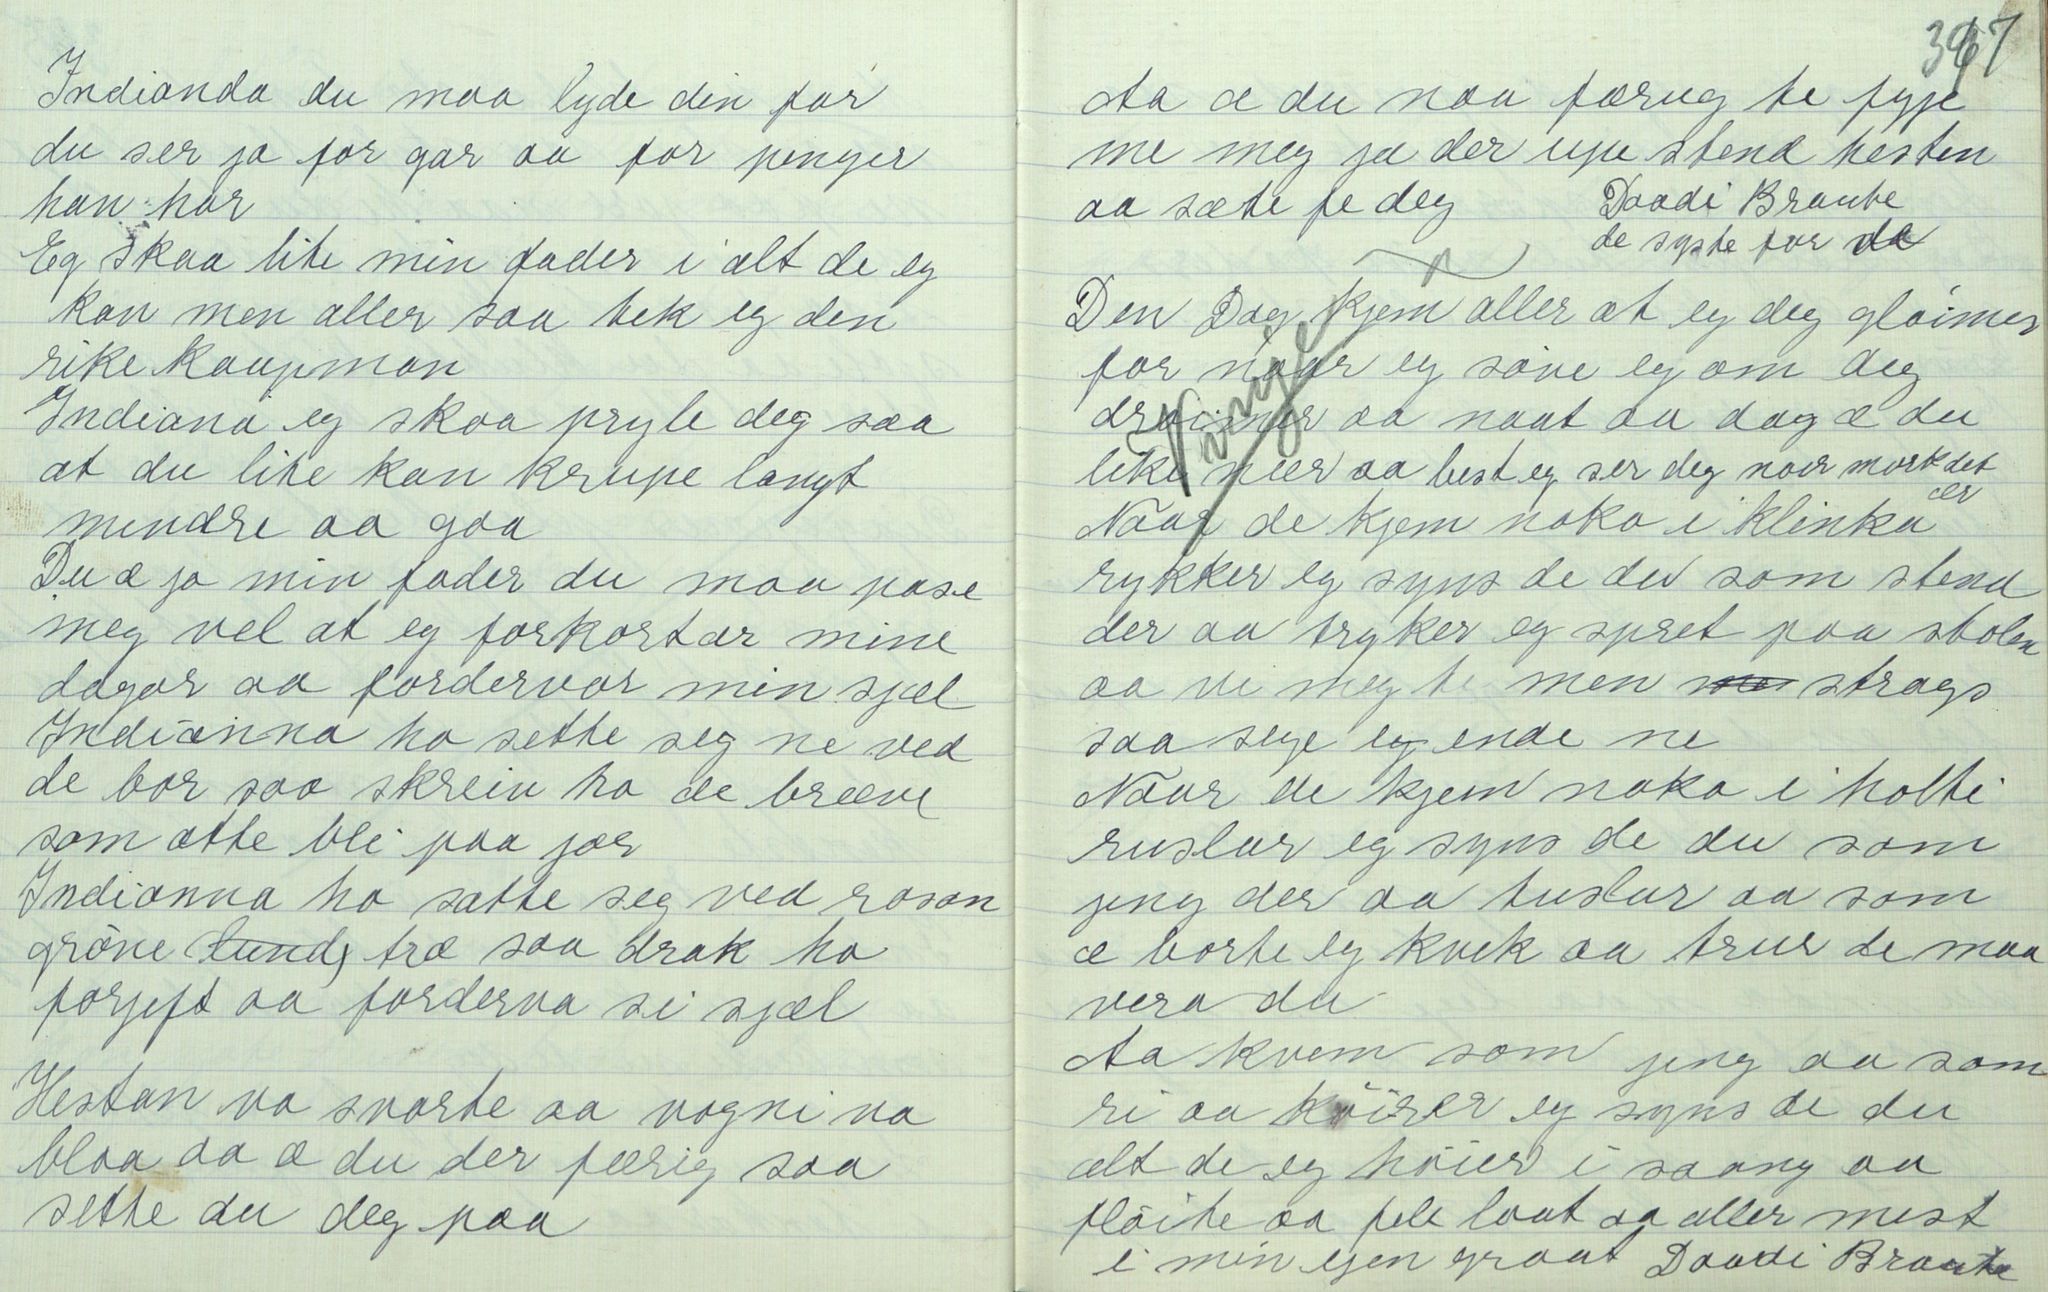 Indianda du maa lyde din far
du ser ja for gar aa for penger
han har
Eg skaa lite min fader i alt de eg
kan men aller saa tek eg den
rike kaupman
Indiana eg skaa pryle deg saa
at du lite kan krupe langt
mindre aa gaa
Du æ jo min fader du maa pase
meg vel at eg forkortar mine
dagar aa fordervar min sjæl
Indianna ho sette seg ne ved
de bor saa skrein ho de bræve
som atte bli paa jor
Indianna ho satte seg ved rosan
gröne (lund) træ saa drak ho
forjeft aa forderva si sjæl
Hestan va svarte aa vogni va
blaa aa æ du der færig saa
sette du deg paa
367
Aa æ du naa færug te fyje
me meg ja der upe stend hesten
aa sæte fe deg Daadi Braute
de syste for de
Den Dag kjem aller at eg deg glöimer
for naar eg söve eg om deg
dröimer aa naat aa dag æ du
like nær aa best eg ser deg naar mørk det
ær
Naar de kjem noko i klinka
rykker eg syns de du som stend
der aa tryker eg spret paa stolen
aa vi meg te men strags
saa seye eg ende ne
Naar de kjem noko i holti
ruslar eg syns de du som
jeng der aa tuslar aa som
æ borte eg kvek aa trur de maa
vera du
Aa kvem som jeng aa som
ri aa köirer eg syns de du
alt de eg höier i saang aa
flöite aa fele laat aa aller mest
i min ejen graat Daadi Braute